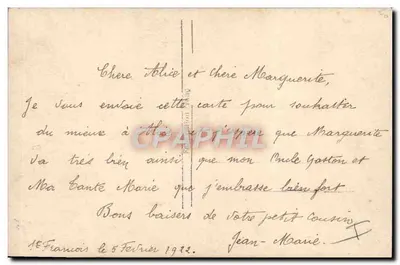 Chere Alice et chère Marguerite,
Je vous envoie cette carte pour souhaiter
du mieux à et que Marguerite
va très bien ainsi que mon Oncle Gaston et
Ma Tante Marie que j'embrasse bien fort.
Bons baisers de votre petit cousin
Jean-Marie.
St François le 8 Février 1922.
CPHRTIE